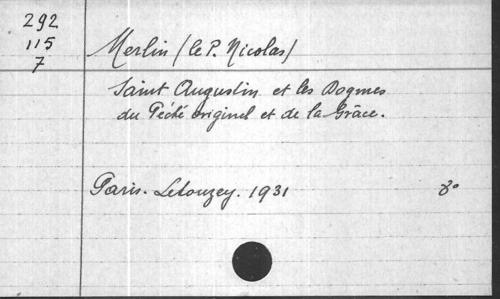 292
115
7
Merlin (le P. Nicolas)
Saint Augustin et les Dogmes
du Péché originel et de la Grâce.
Paris. Letouzey. 1931 8°